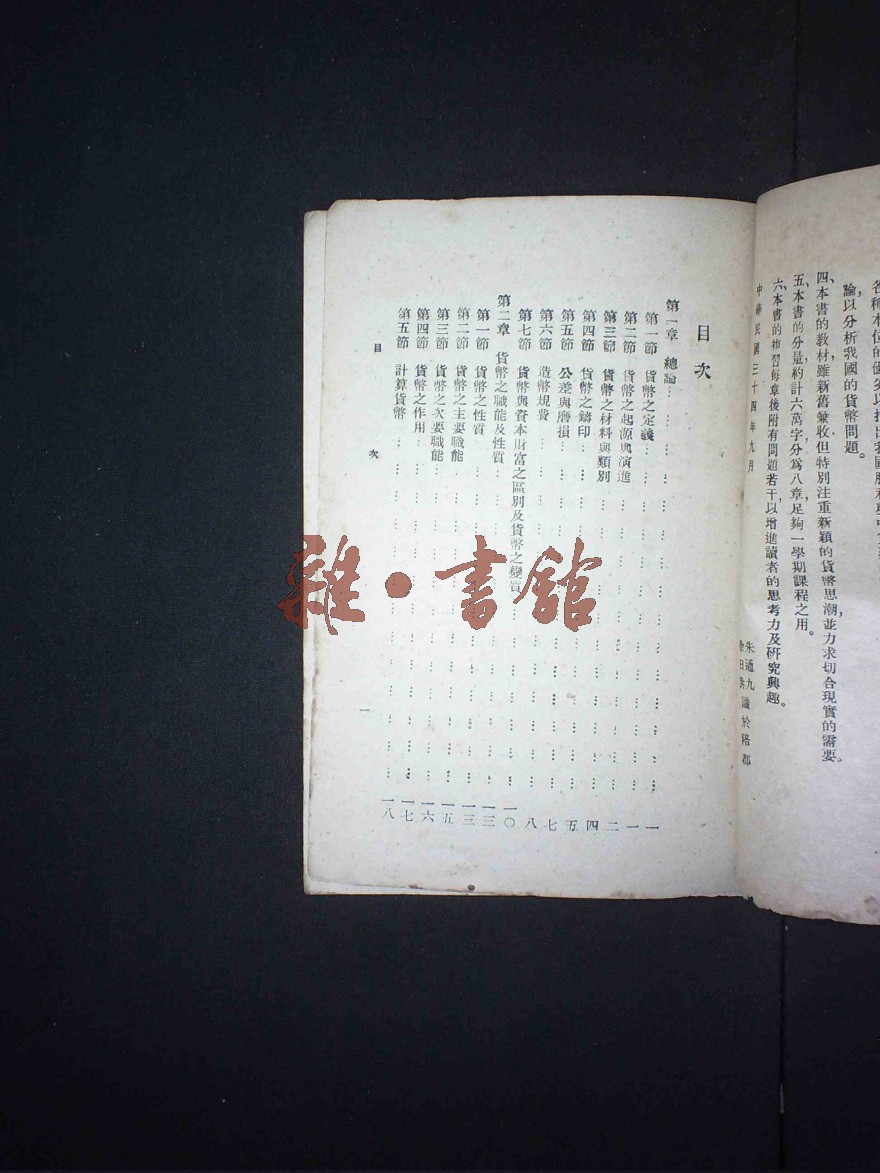 各種本位的優劣以指出我國
論，以分析我國的貨幣問題。
四、本書的教材雖新舊兼收但特別注重新穎的貨幣思潮，並力求切合現實的需要。
五、本書的分量，約計六萬字分爲八章，足夠一學期課程之用。
六、本書的複習每章後附有問題若干，以增進讀者的思考力及硏究興趣。
中華民國三十四年九月
朱通九
識於陪都
目次
第一章 總論……一
第一節 貨幣之定義……一
第二節 貨幣之起源與演進……二
第三節 貨幣之材料與類別……四
第四節 貨幣之鑄印……五
第五節 公差與磨損……七
第六節 造幣規費……八
第七節 貨幣與資本財富之區別及貨幣之變質……一〇
第二章 貨幣之職能及性質……一三
第一節 貨幣之性質……一三
第二節 貨幣之主要職能……一五
第三節 貨幣之次要職能……一六
第四節 貨幣之作用……一七
第五節 計算貨幣……一八
目次
一
雜·書館